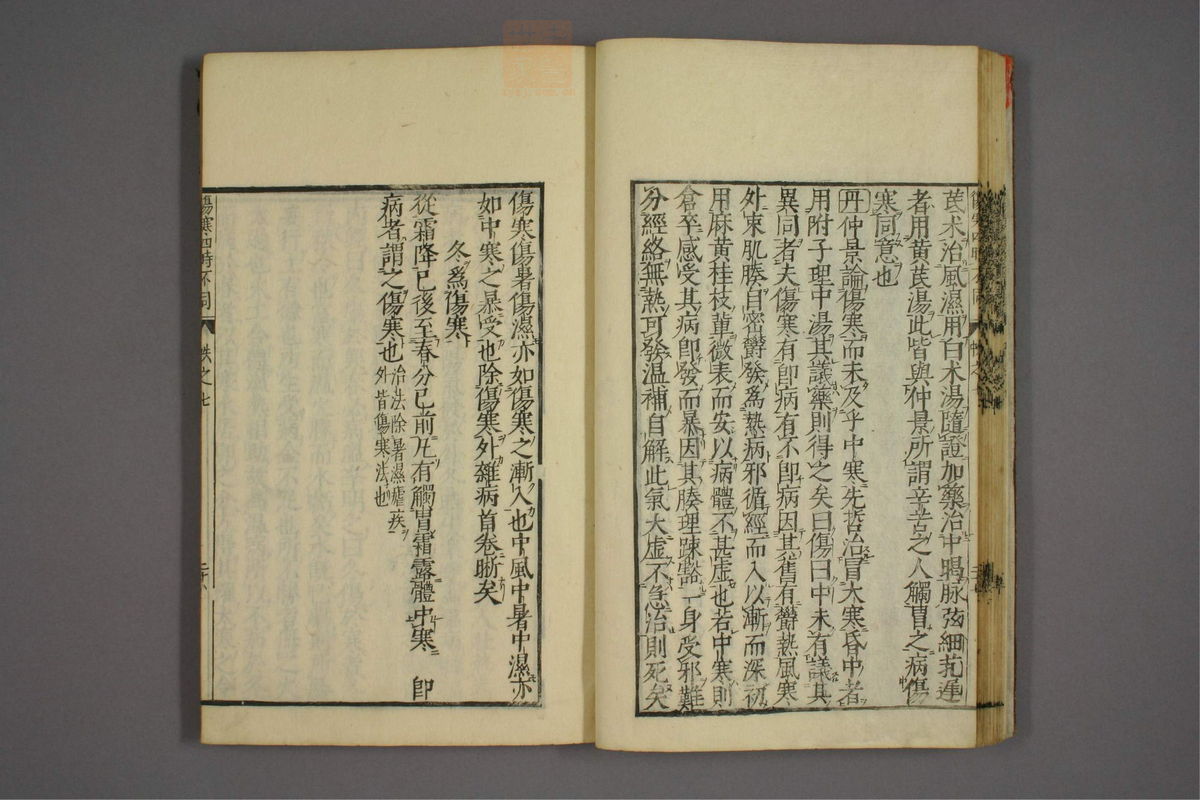 芪朮治風濕用白朮湯隨證加藥治中暍脉弦細芤遲
者用黄芪湯此皆與仲景所謂辛苦之人觸冒之病傷
寒同意也
丹仲景論傷寒而未及乎中寒先哲治冒大寒昏中者
用附子理中湯其議藥則得之矣曰傷曰中未有議其
異同者夫傷寒有即病有不即病因其舊有欝熱風寒
外束肌腠自密欝發爲熱病邪循經而入以漸而深初
用麻黄桂枝軰微表而安以病體不甚虚也若中寒則
倉卒感受其病即發而暴因其腠理踈豁一身受邪難
分經絡無熱可發温補自解此氣大虚不急治則死矣
傷寒傷暑傷濕亦如傷寒之漸入也中風中暑中濕亦
如中寒之暴受也除傷寒外雜病首卷晣矣
冬爲傷寒
從霜降已後至春分已前凢有觸冒霜露體中寒 即
病者謂之傷寒也治法除暑濕瘧疾
外皆傷寒法也
傷寒四時不同 帙之七